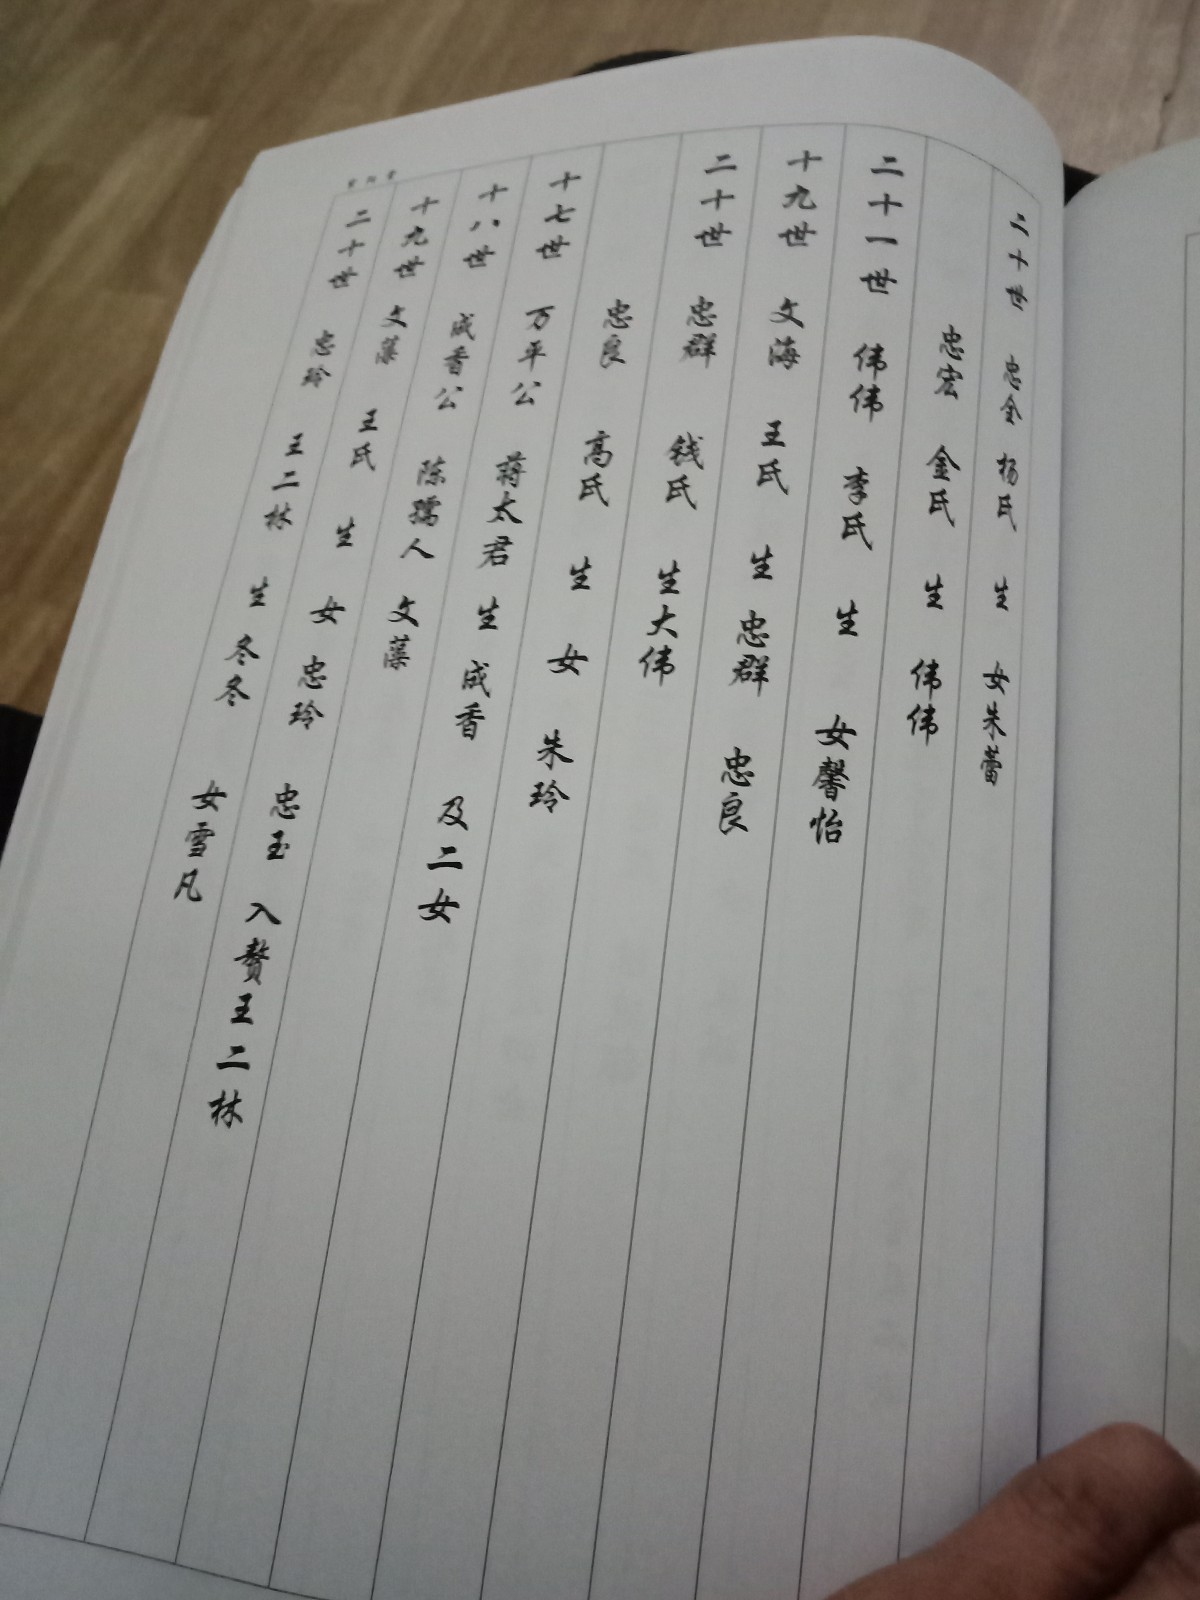 二十世 忠金 杨氏 生 女朱蕾
忠宏 金氏 生 伟伟
二十一世 伟伟 李氏 生 女馨怡
十九世 文海 王氏 生 忠群 忠良
二十世 忠群 钱氏 生大伟
忠良 高氏 生 女 朱玲
十七世 万平公 蒋太君 生 成香 及二女
十八世 成香公 陈孺人 文藻
十九世 文藻 王氏 生 女 忠玲 忠玉 入赘王二林
二十世 忠玲 王二林 生 冬冬 女雪凡